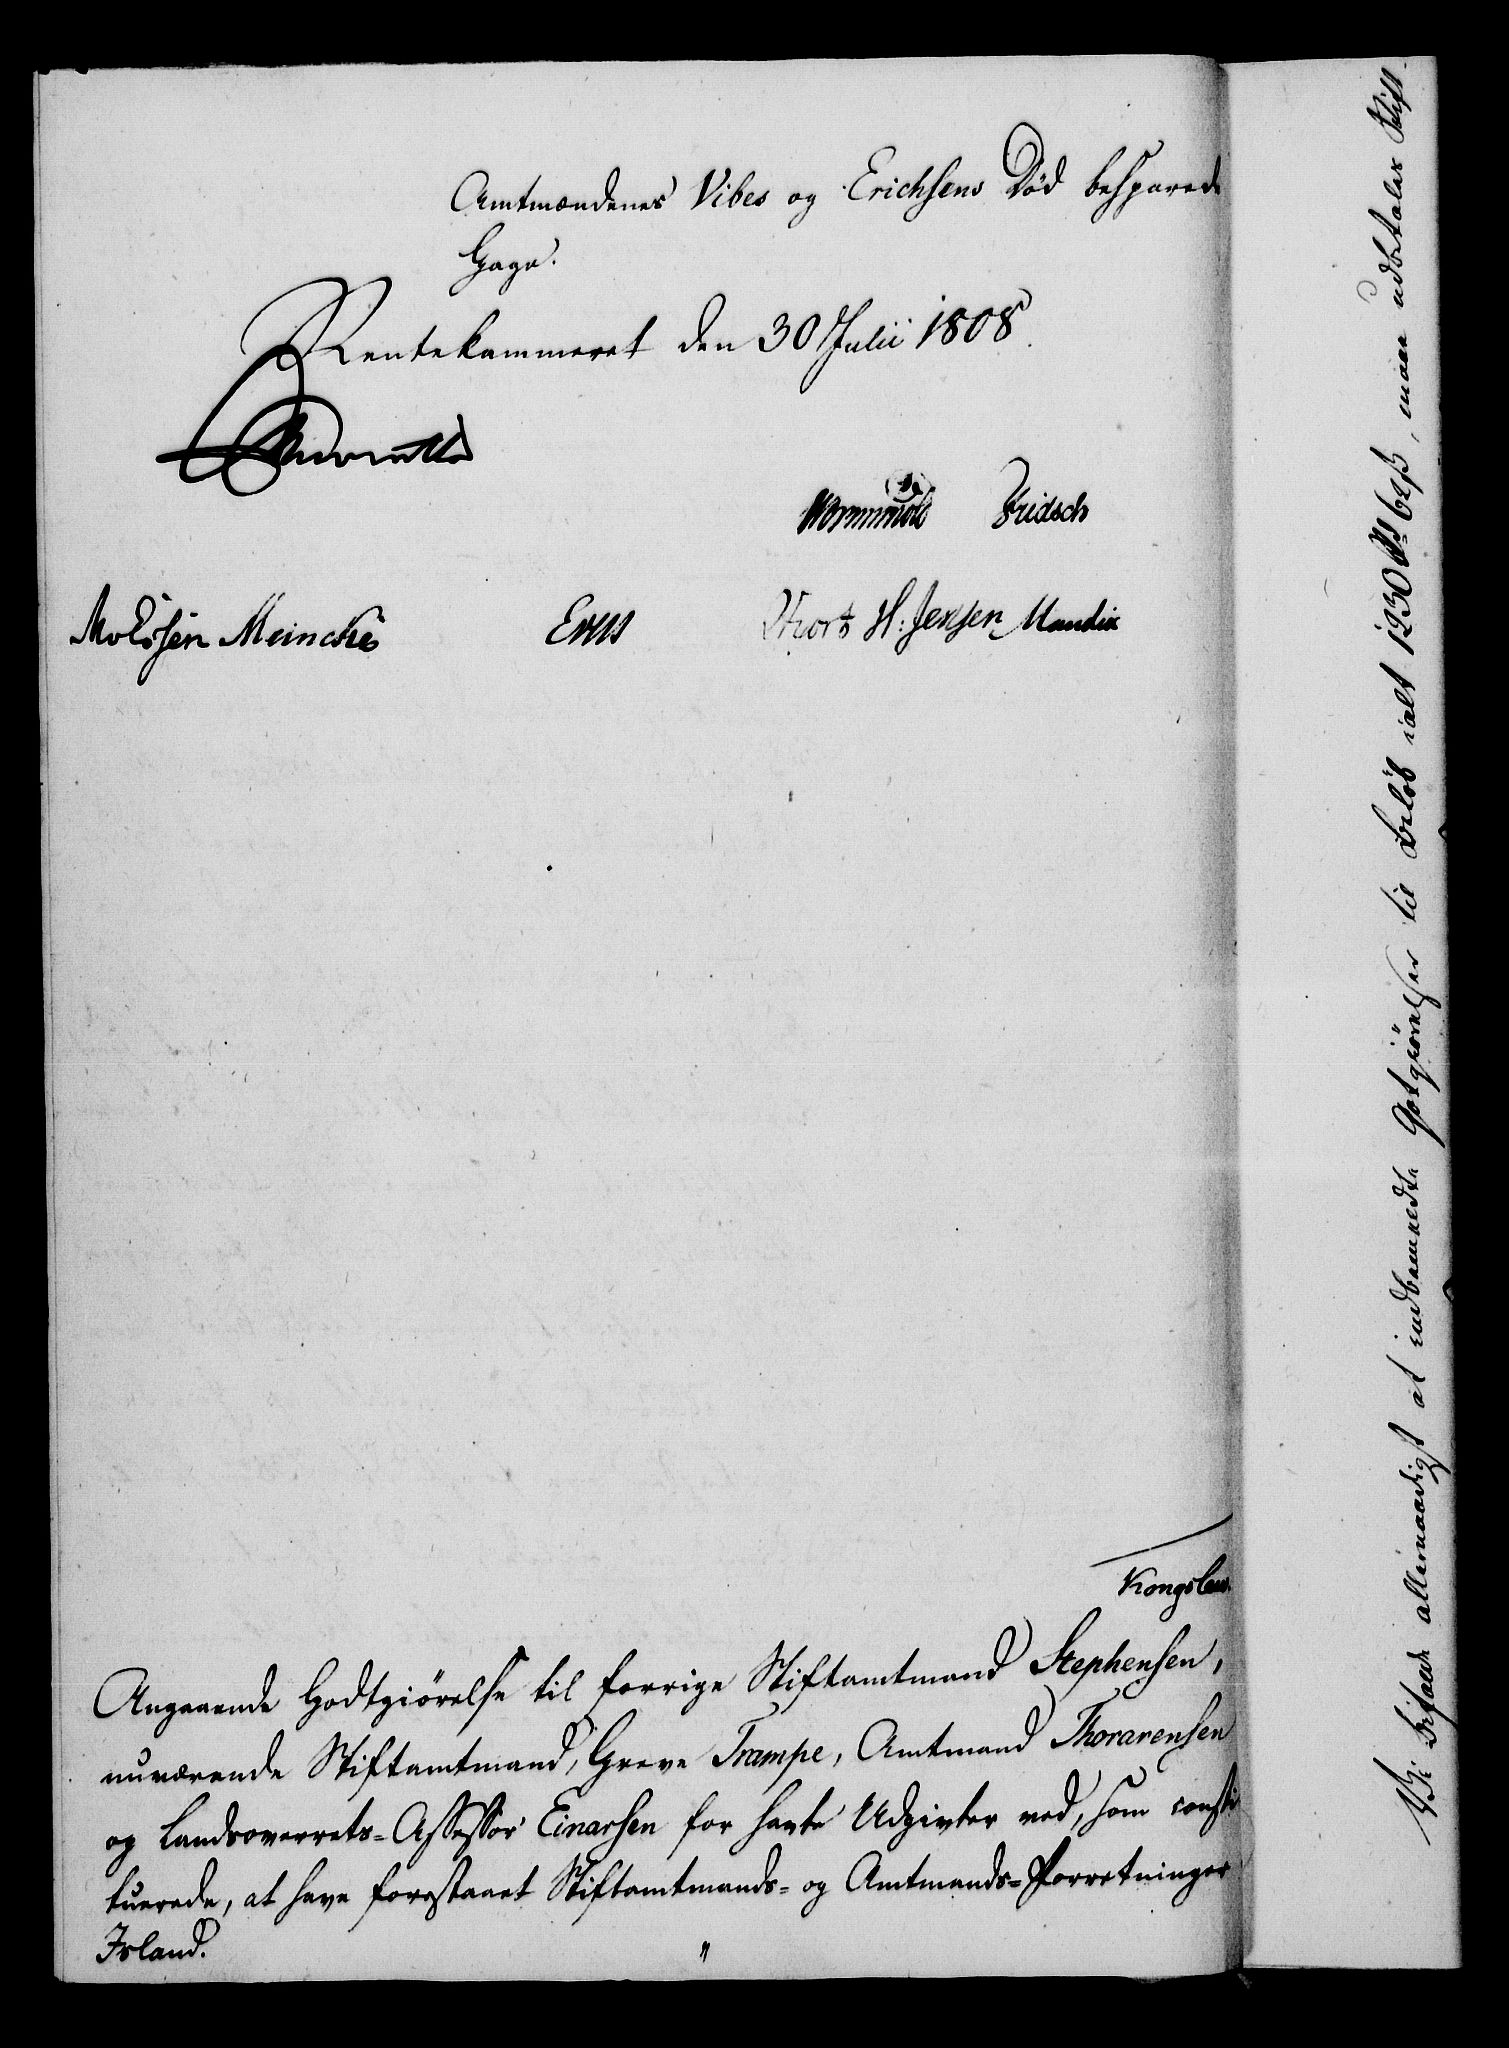 Amtmændenes Vibes og Erichsens Død besparede
Gage.
Rentekammeret den 30 Julii 1808.
Wormskiold Fridsch
Meincke
H: Jensen Mandix
Kongsleu.
Angaaende Godtgiörelse til forrige Stiftamtmand Stephensen,
nuværende Stiftamtmand, Greve Trampe, Amtmand Thorarensen
og Landsoverrets-Assessor Einarsen for havte Udgivter ved, som consti
tuerede, at have forestaaet Stiftamtmands- og Amtmands-Forretninger
Island.
Vi bifalde allernaadigst at indbemeldte Godtgiörelser til Beløb ialt 1230 rd 62 ß, maae udbetales Stift-